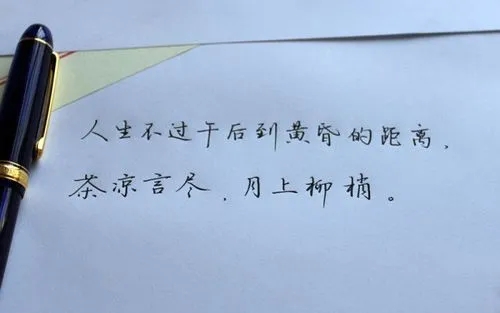 人生不过午后到黄昏的距离，
茶凉言尽，月上柳梢。